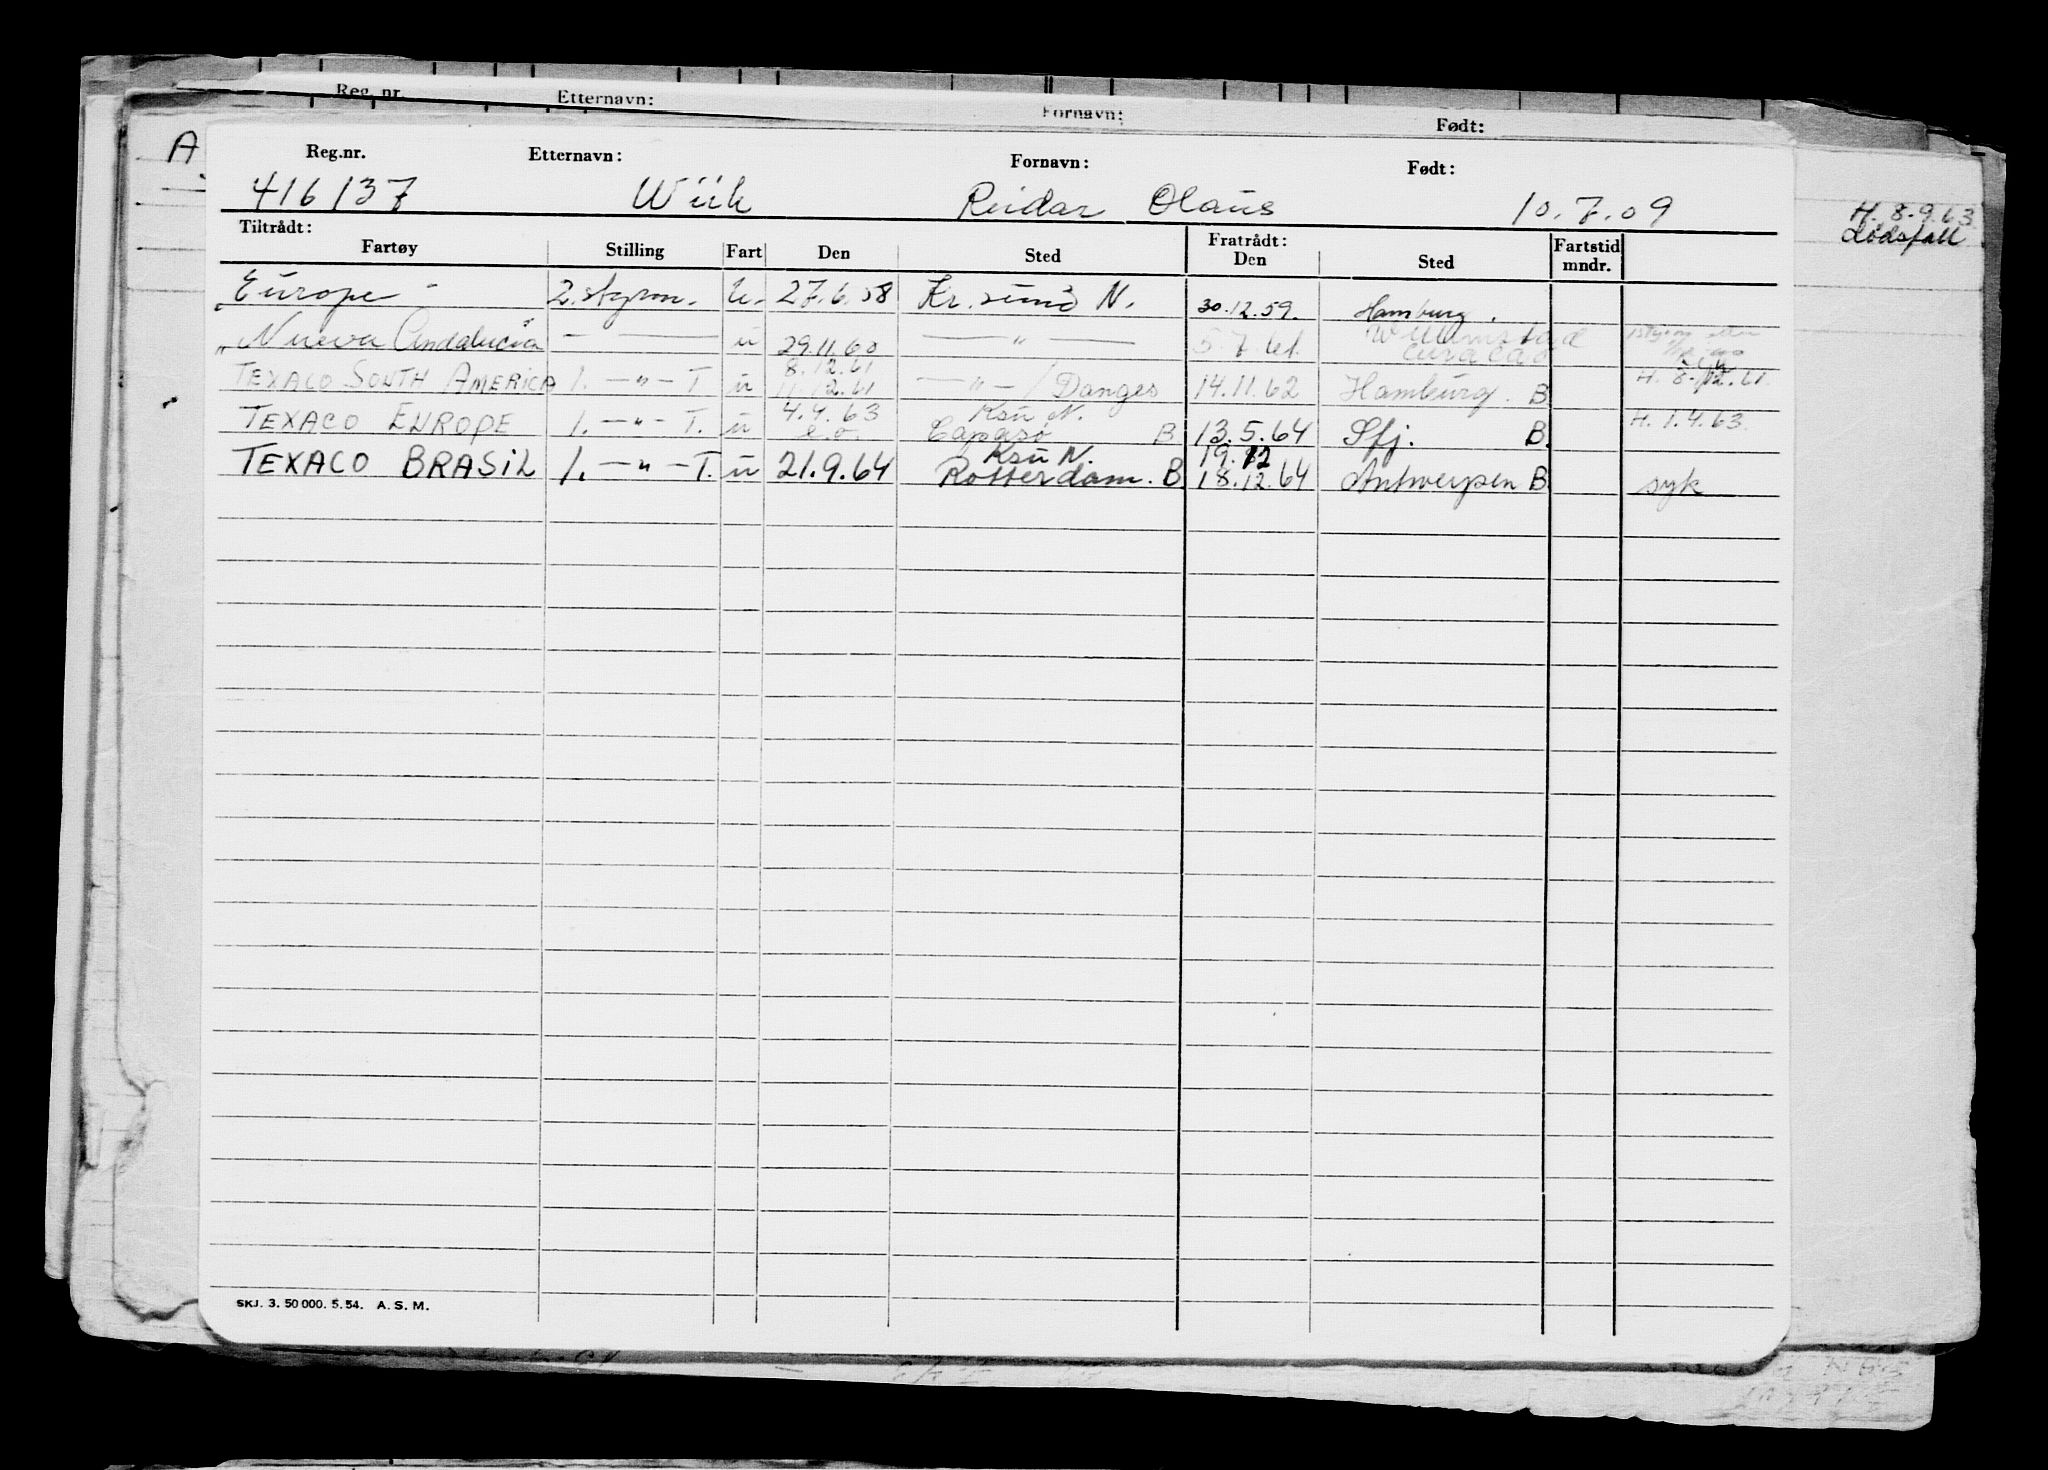 Reg. nr. Etternavn: Fornavn: Født:
A
Reg.nr. Etternavn: Fornavn: Født:
416137 Wiik Reidar Olaus 10.7.09
H. 8.9.63
dødsfall
Tiltrådt: Fratrådt:
Fartøy Stilling Fart Den Sted Den Sted Fartstid mndr.
Europe 2. styrm. u. 27.6.58 Kr.sund N. 30.12.59. Hamburg.
"Nueva Andalucia" — u 29.11.60 — " — 5.7.61. Willemstad Curacao
TEXACO SOUTH AMERICA 1. — " — T. u 8.12.61 11.12.61 — " — / Donges 14.11.62 Hamburg. B H. 8.12.61.
TEXACO EUROPE 1. — " — T. u 4.4.63 Ksu N. B 13.5.64 Sfj. B. H. 1.4.63.
TEXACO BRASIL 1. — " — T. u 21.9.64 Ksu N. Rotterdam. B. 19.12 18.12.64 Antwerpen B syk
SKJ. 3. 50 000. 5. 54. A. S. M.